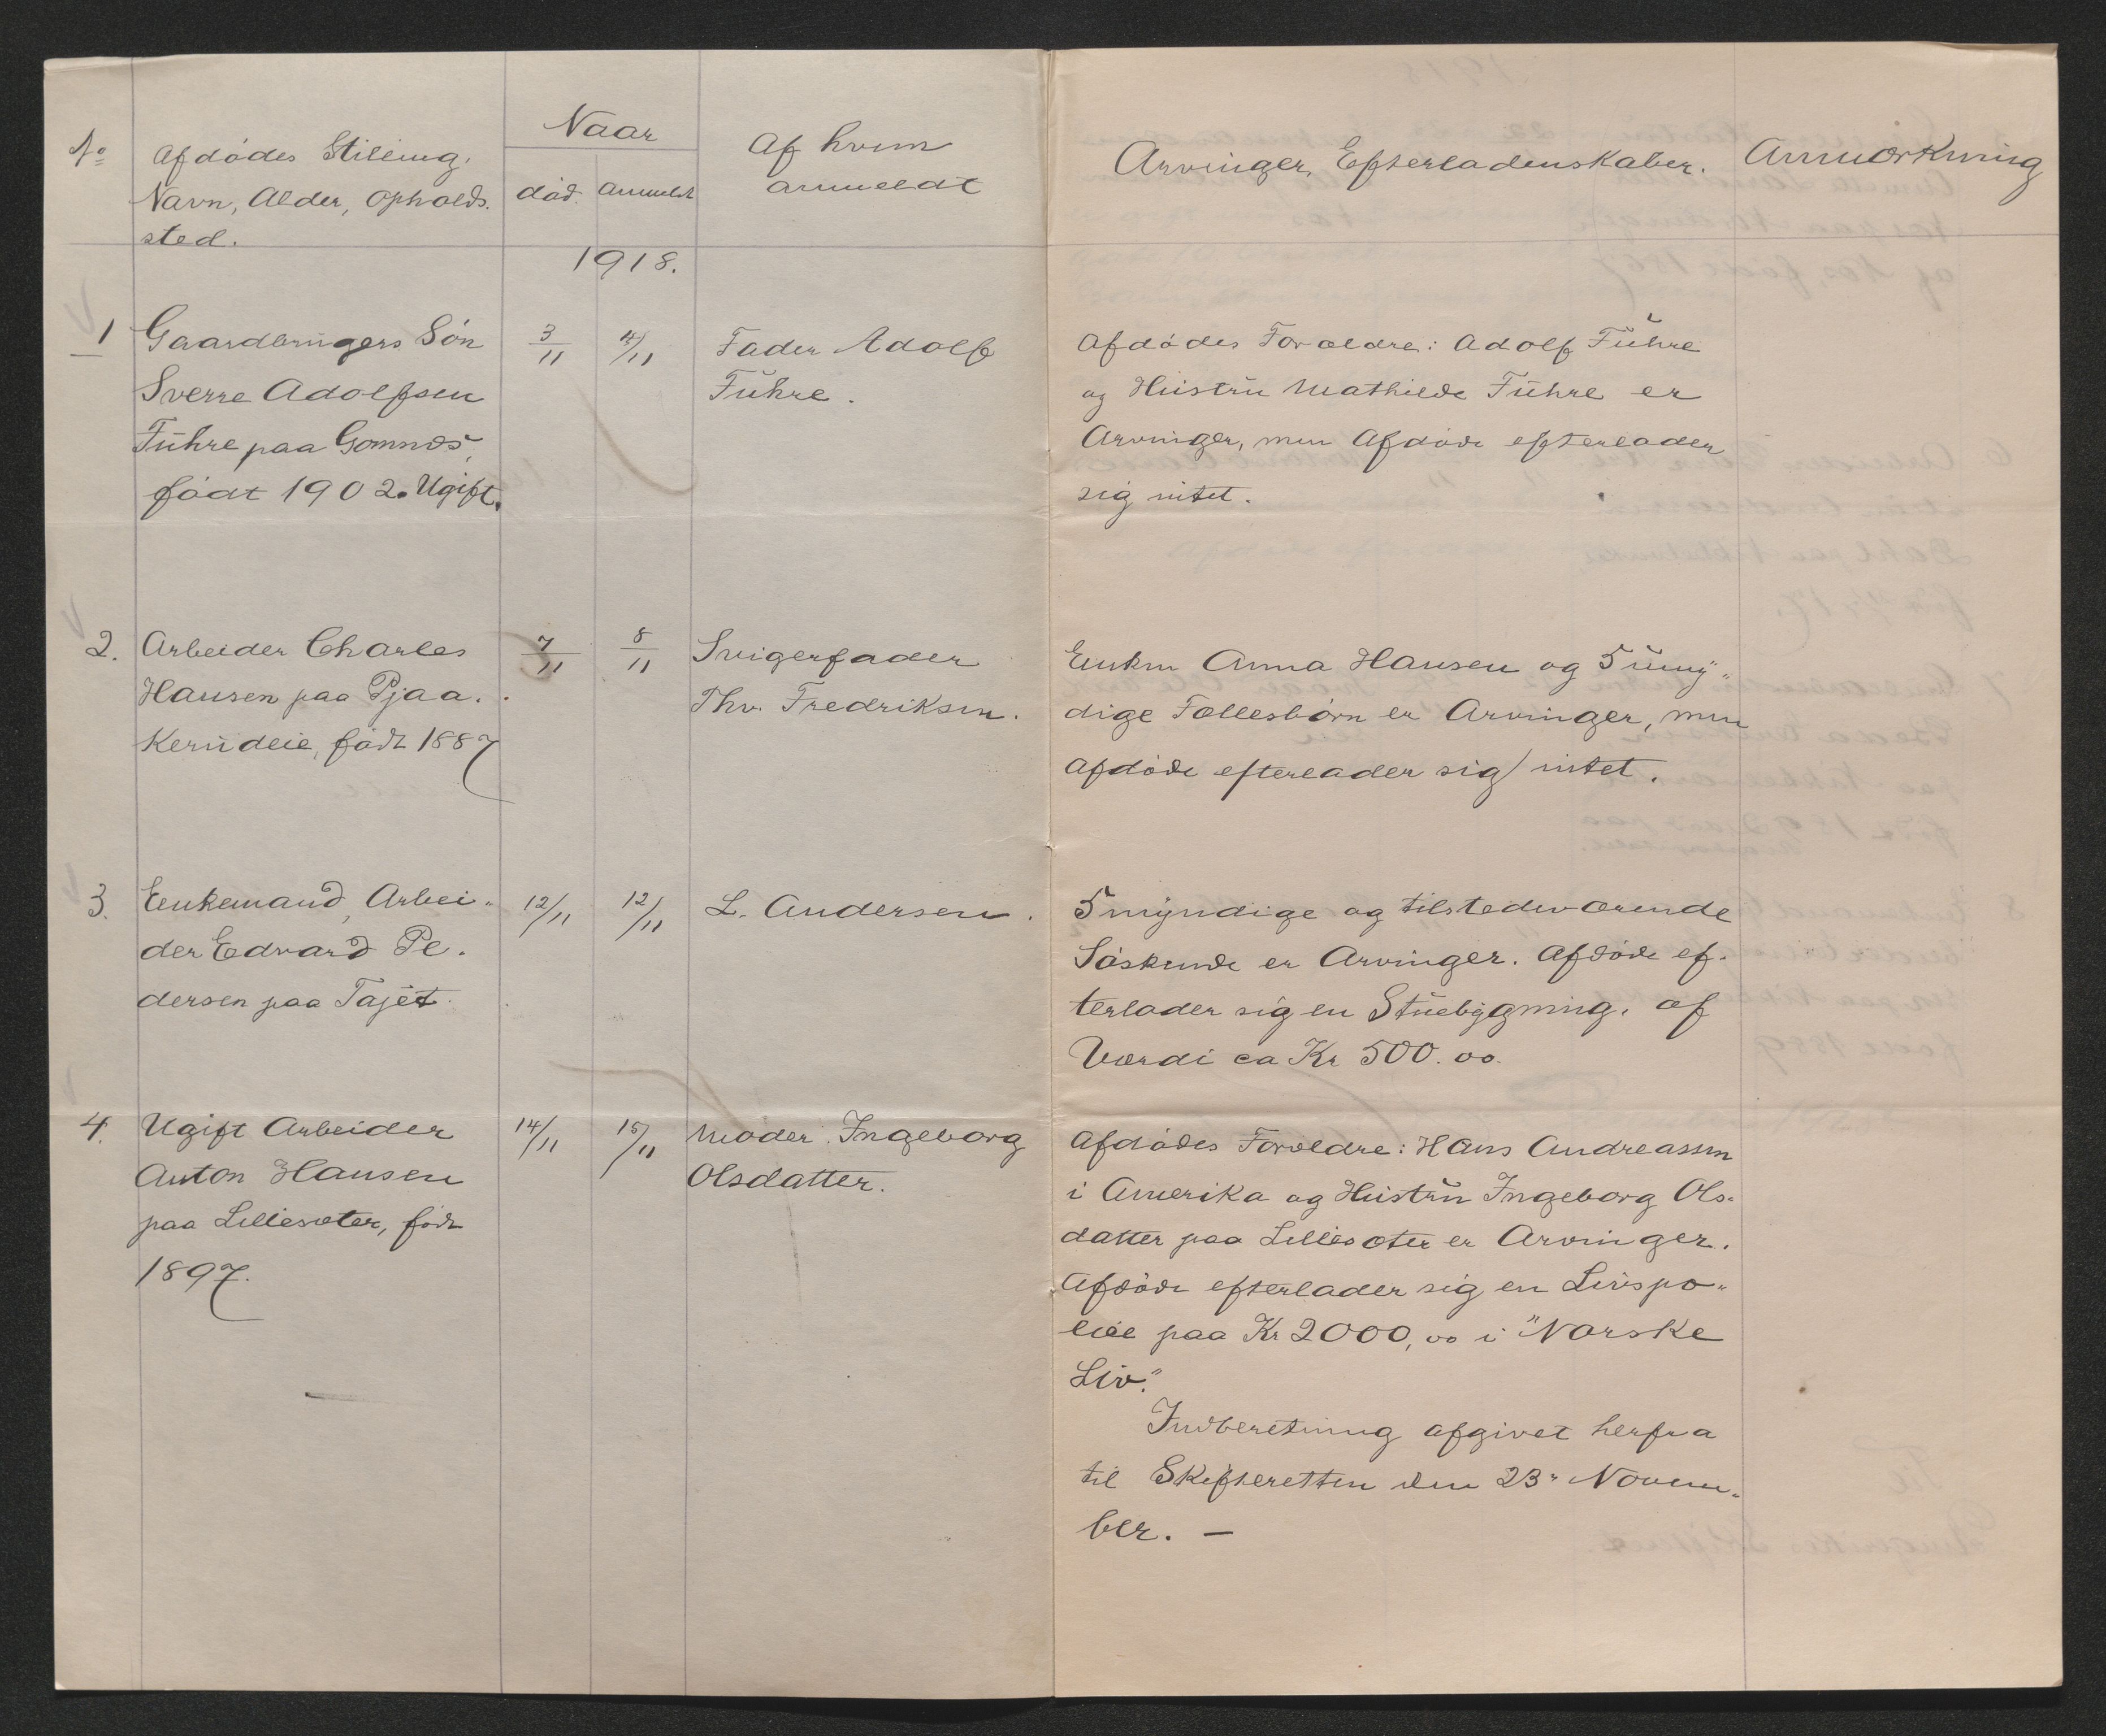 No Afdødes Stilling. Naar Af hvem Arvinger, Efterladenskaber. Anmærkning
Navn, Alder, Opholds- død. anmeldt anmeldt
sted.
1918.
1 Gaardbrugers Søn 3/11 4/11 Fader Adolf
Sverre Adolfsen Fuhre.
Fuhre paa Gomnæs,
født 1902. Ugift.
Afdødes Forældre: Adolf Fuhre
og Hustru Mathilde Fuhre er
Arvinger, men Afdøde efterlader
sig intet.
2. Arbeider Charles 7/11 8/11 Svigerfader
Hansen paa Pjaa- Thv. Fredriksen.
kerudeie, født 1887
Enken Anna Hansen og 5 umyn-
dige Fællesbørn er Arvinger, men
Afdøde efterlader sig intet.
3. Enkemand, Arbei- 12/11 12/11 L. Andersen.
der Edvard Pe-
dersen paa Tajet.
5 myndige og tilstedeværende
Søskende er Arvinger. Afdøde ef-
terlader sig en Stuebygning, af
Værdi ca Kr 500.00.
4. Ugift Arbeider 14/11 15/11 Moder Ingeborg
Anton Hansen Olsdatter.
paa Lillesæter, født
1897.
Afdødes Forældre: Hans Andreassen
i Amerika og Hustru Ingeborg Ols-
datter paa Lillesæter er Arvinger.
Afdøde efterlader sig en Livspo-
lice paa Kr 2000,00 i "Norske
Liv".
Indberetning afgivet herfra
til Skifteretten den 23' Novem-
ber. —